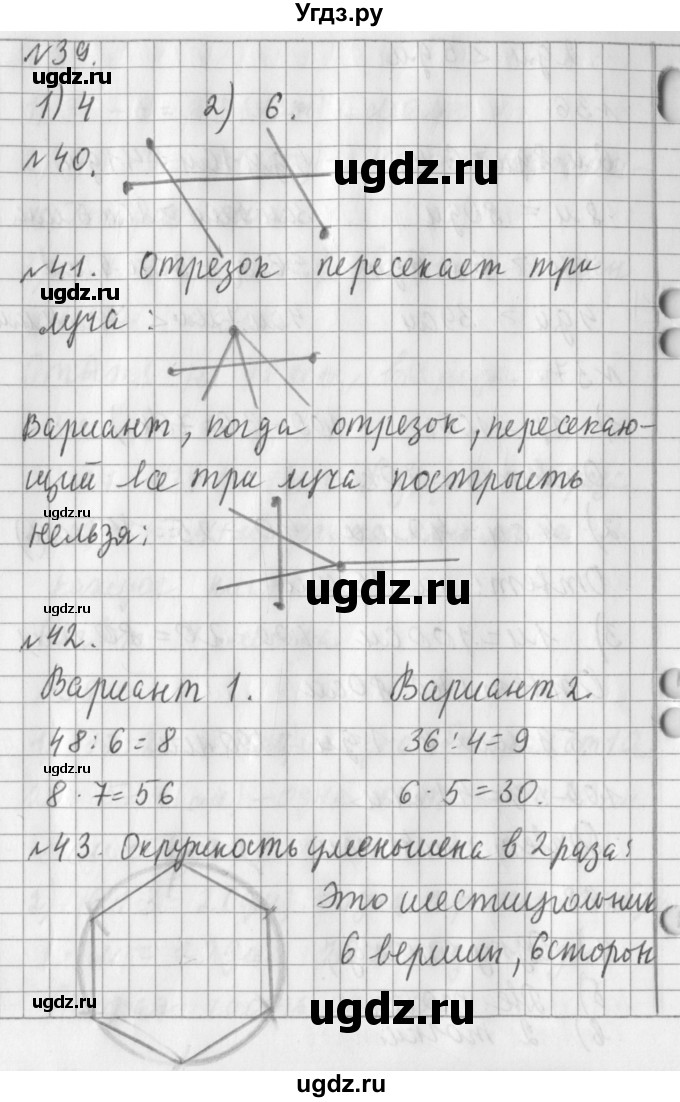 Угдз.ру
№39.
1) 4 2) 6.
№40.
ugdz.ru
ugdz.ru
№41. Отрезок пересекает три
ugdz.ru
луча:
Вариант, когда отрезок, пересекаю-
щий все три луча построить
ugdz.ru
нельзя:
ugdz.ru
ugdz.ru
№42.
Вариант 1. Вариант 2.
48:6=8 36:4=9
ugdz.ru
8·7=56 6·5=30.
№43. Окружность уменьшена в 2 раза:
Это шестиугольник
6 вершин, 6 сторон
ugdz.ru
ugdz.ru
ugdz.ru